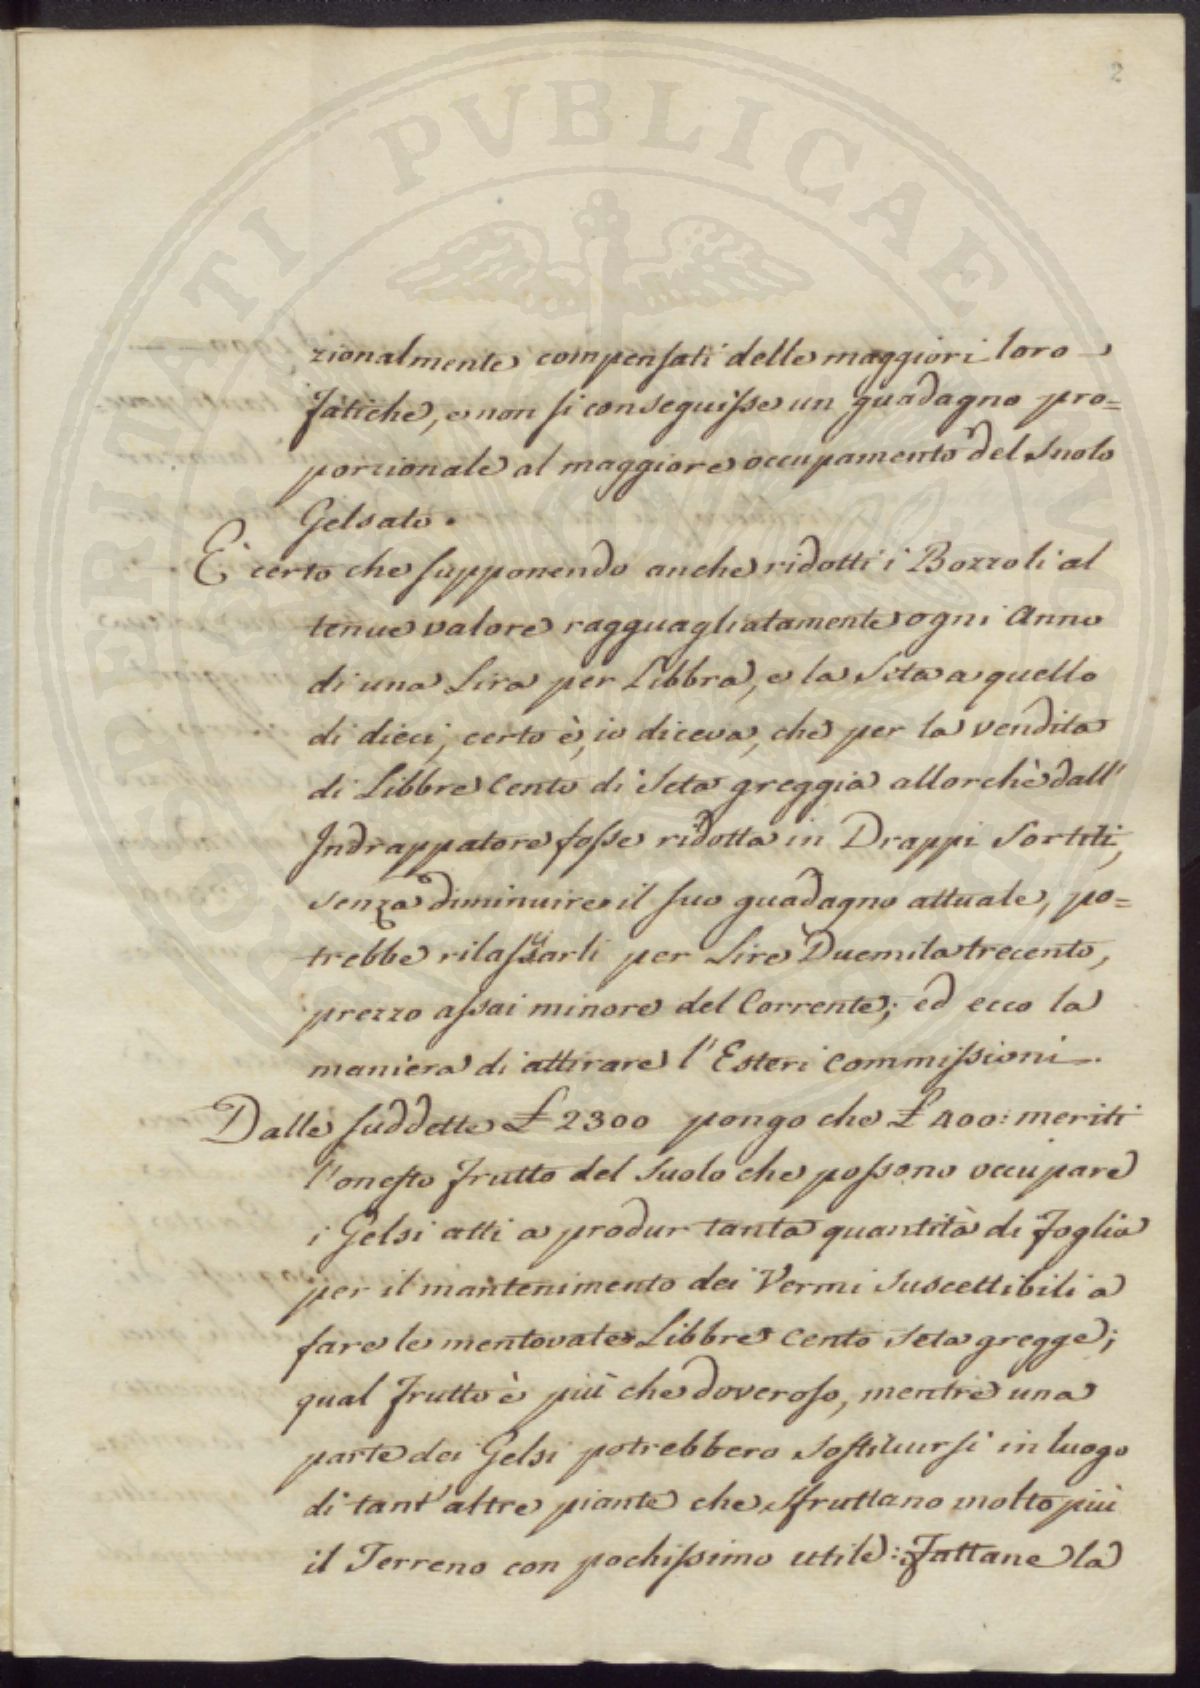 2
PROSPERITATI PVBLICAE
zionalmente compensati delle maggiori loro
fatiche, e non si conseguisse un guadagno pro=
porzionale al maggiore occupamento del Suolo
Gelsato.
È certo che supponendo anche ridotti i Bozzoli al
tenue valore ragguagliatamente ogni Anno
di una Lira per Libbra, e la Seta a quello
di dieci, certo è, io diceva, che per la vendita
di Libbre Cento di Seta greggia allorchè dall'
Indrappatore fosse ridotta in Drappi Sortiti,
senza diminuire il suo guadagno attuale, po=
trebbe rilassarli per Lire Duemila trecento,
prezzo assai minore del Corrente; ed ecco la
maniera di attirare l'Esteri Commissioni.
Dalle suddette £ 2300 pongo che £ 400: meriti
l'onesto frutto del Suolo che possono occupare
i Gelsi atti a produr tanta quantità di Foglia
per il mantenimento dei Vermi Suscettibili a
fare le mentovate Libbre Cento Seta gregge;
qual frutto è più che doveroso, mentre una
parte dei Gelsi potrebbero Sostituirsi in luogo
di tant'altre piante che sfruttano molto più
il Terreno con pochissimo utile: Fattane la